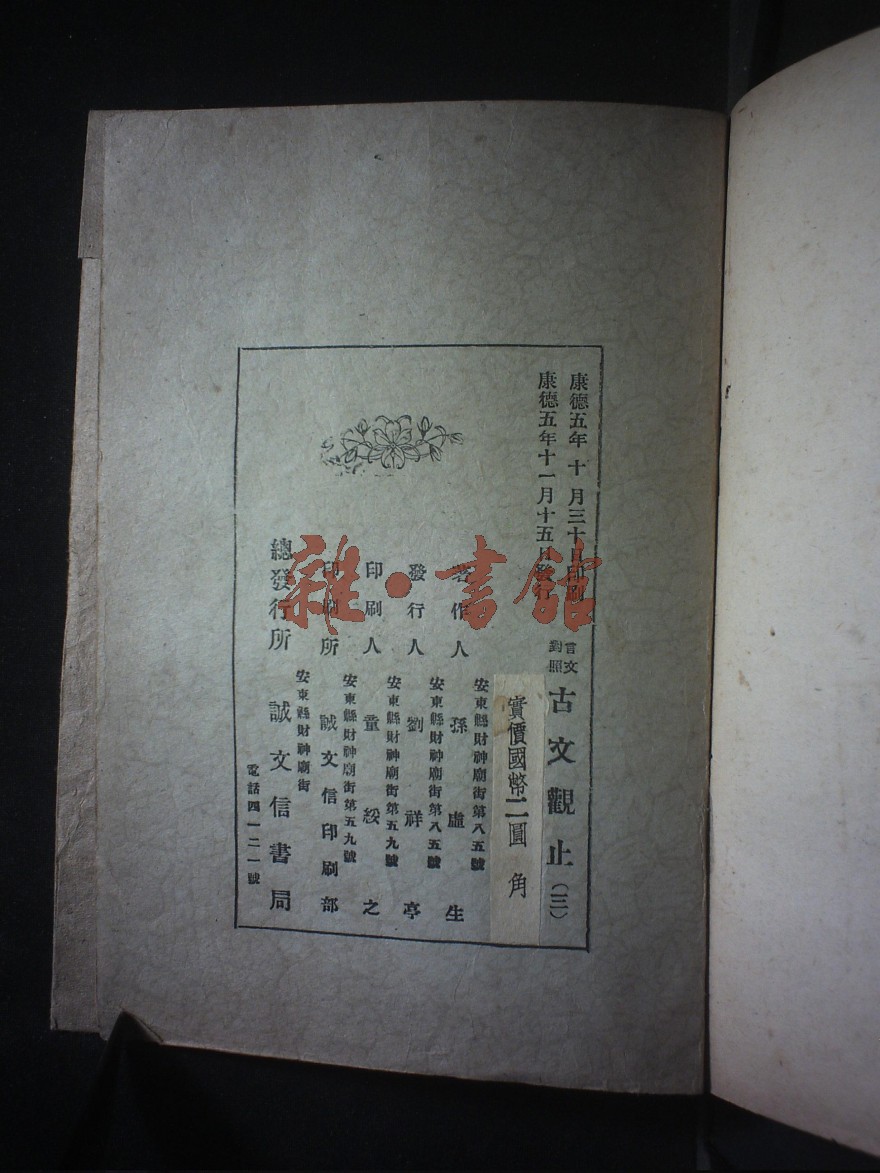 康德五年 十 月三十日印刷
康德五年十一月十五日發行
言文對照 古文觀止(三)
實價國幣二圓 角
著作人 安東縣財神廟街第八五號 孫虛生
發行人 安東縣財神廟街第八五號 劉祥亭
印刷人 安東縣財神廟街第五九號 童綏之
印刷所 安東縣財神廟街第五九號 誠文信印刷部
總發行所 安東縣財神廟街 誠文信書局
電話四一二一號
雜·書館